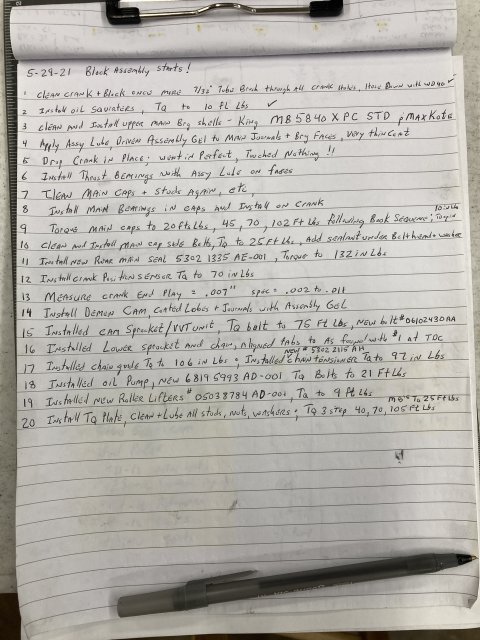 5-29-21 Block Assembly starts!
1 Clean crank + Block once more 7/32" Tube Brush through all crank Holes, Hose Down with WD40 ✓
2 Install oil squirters, Tq to 10 ft Lbs ✓
3 clean and Install upper main Brg shells - King MB5840XPC STD pMaxKote
4 Apply Assy Lube, Driven Assembly Gel to Main Journals + Brg Faces, very thin coat
5 Drop Crank in Place; went in Perfect, Touched Nothing!!
6 Install Thrust Bearings with Assy Lube on faces
7 Clean Main Caps + studs Again, etc,
8 Install Main Bearings in caps and Install on Crank
10 in Lbs
9 Torque main caps to 20 ft Lbs, 45, 70, 102 Ft Lbs following Book Sequence;
10 Clean and Install Main cap side Bolts, Tq to 25 Ft Lbs, Add sealant under Bolt head + washer
11 Install new Rear main seal 5302 1335 AE-001, Torque to 132 in Lbs
12 Install crank Position sensor Tq to 70 in Lbs
13 Measure crank End Play = .007" spec = .002 to .011
14 Install Demon Cam, Coated Lobes + Journals with Assembly Gel
15 Installed Cam Sprocket/VVT unit, Tq bolt to 75 Ft Lbs, new bolt #06102430AA
16 Installed Lower sprocket and chain, aligned tabs to As found with #1 at TDC
new # 5302 2115 AH
17 Installed chain guide Tq to 106 in Lbs • Installed chain tensioner Tq to 97 in Lbs
18 Installed oil Pump, new 6819 5993 AD-001 Tq Bolts to 21 Ft Lbs
19 Installed new Roller Lifters # 05038784 AD-001, Tq to 9 Ft Lbs
M8's To 25 Ft Lbs
20 Install Tq Plate, clean + Lube all studs, nuts, washers; Tq 3 step 40, 70, 105 Ft Lbs